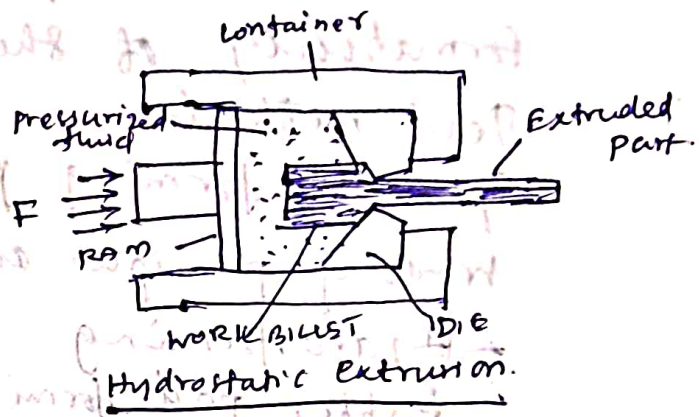 Container
Pressurized
fluid
Extruded
Part.
F
RAM
WORK BILLET
DIE
Hydrostatic Extrusion.